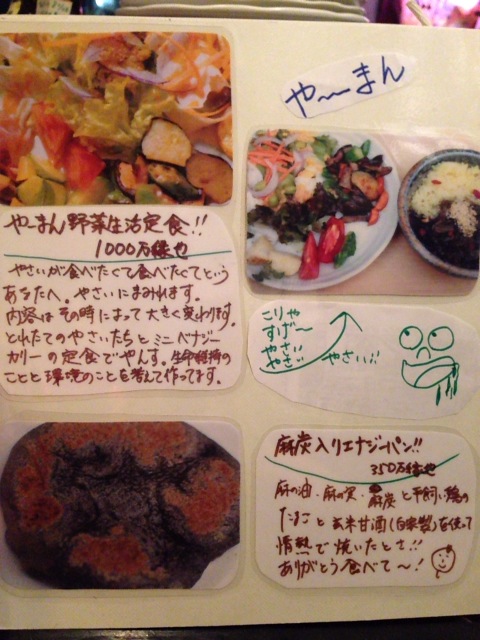 や〜まん
やーまん野菜生活定食!!
1000万様也
やさいが食べたくて食べたくてという
あなたへ。やさいにまみれます。
内容はその時によって大きく変わります。
とれたてのやさいたちとミニベナジー
カリーの定食でやんす。生命維持の
ことと環境のことを考えて作ってます。
こりゃ
すげ〜
やさい
やさい
やさい!!
麻炭入りエナジーパン!!
350万様也
麻の油・麻の実・麻炭と平飼い鶏の
たまごと玄米甘酒(自家製)を使って
情熱で焼いたとさ!!
ありがとう食べて〜!